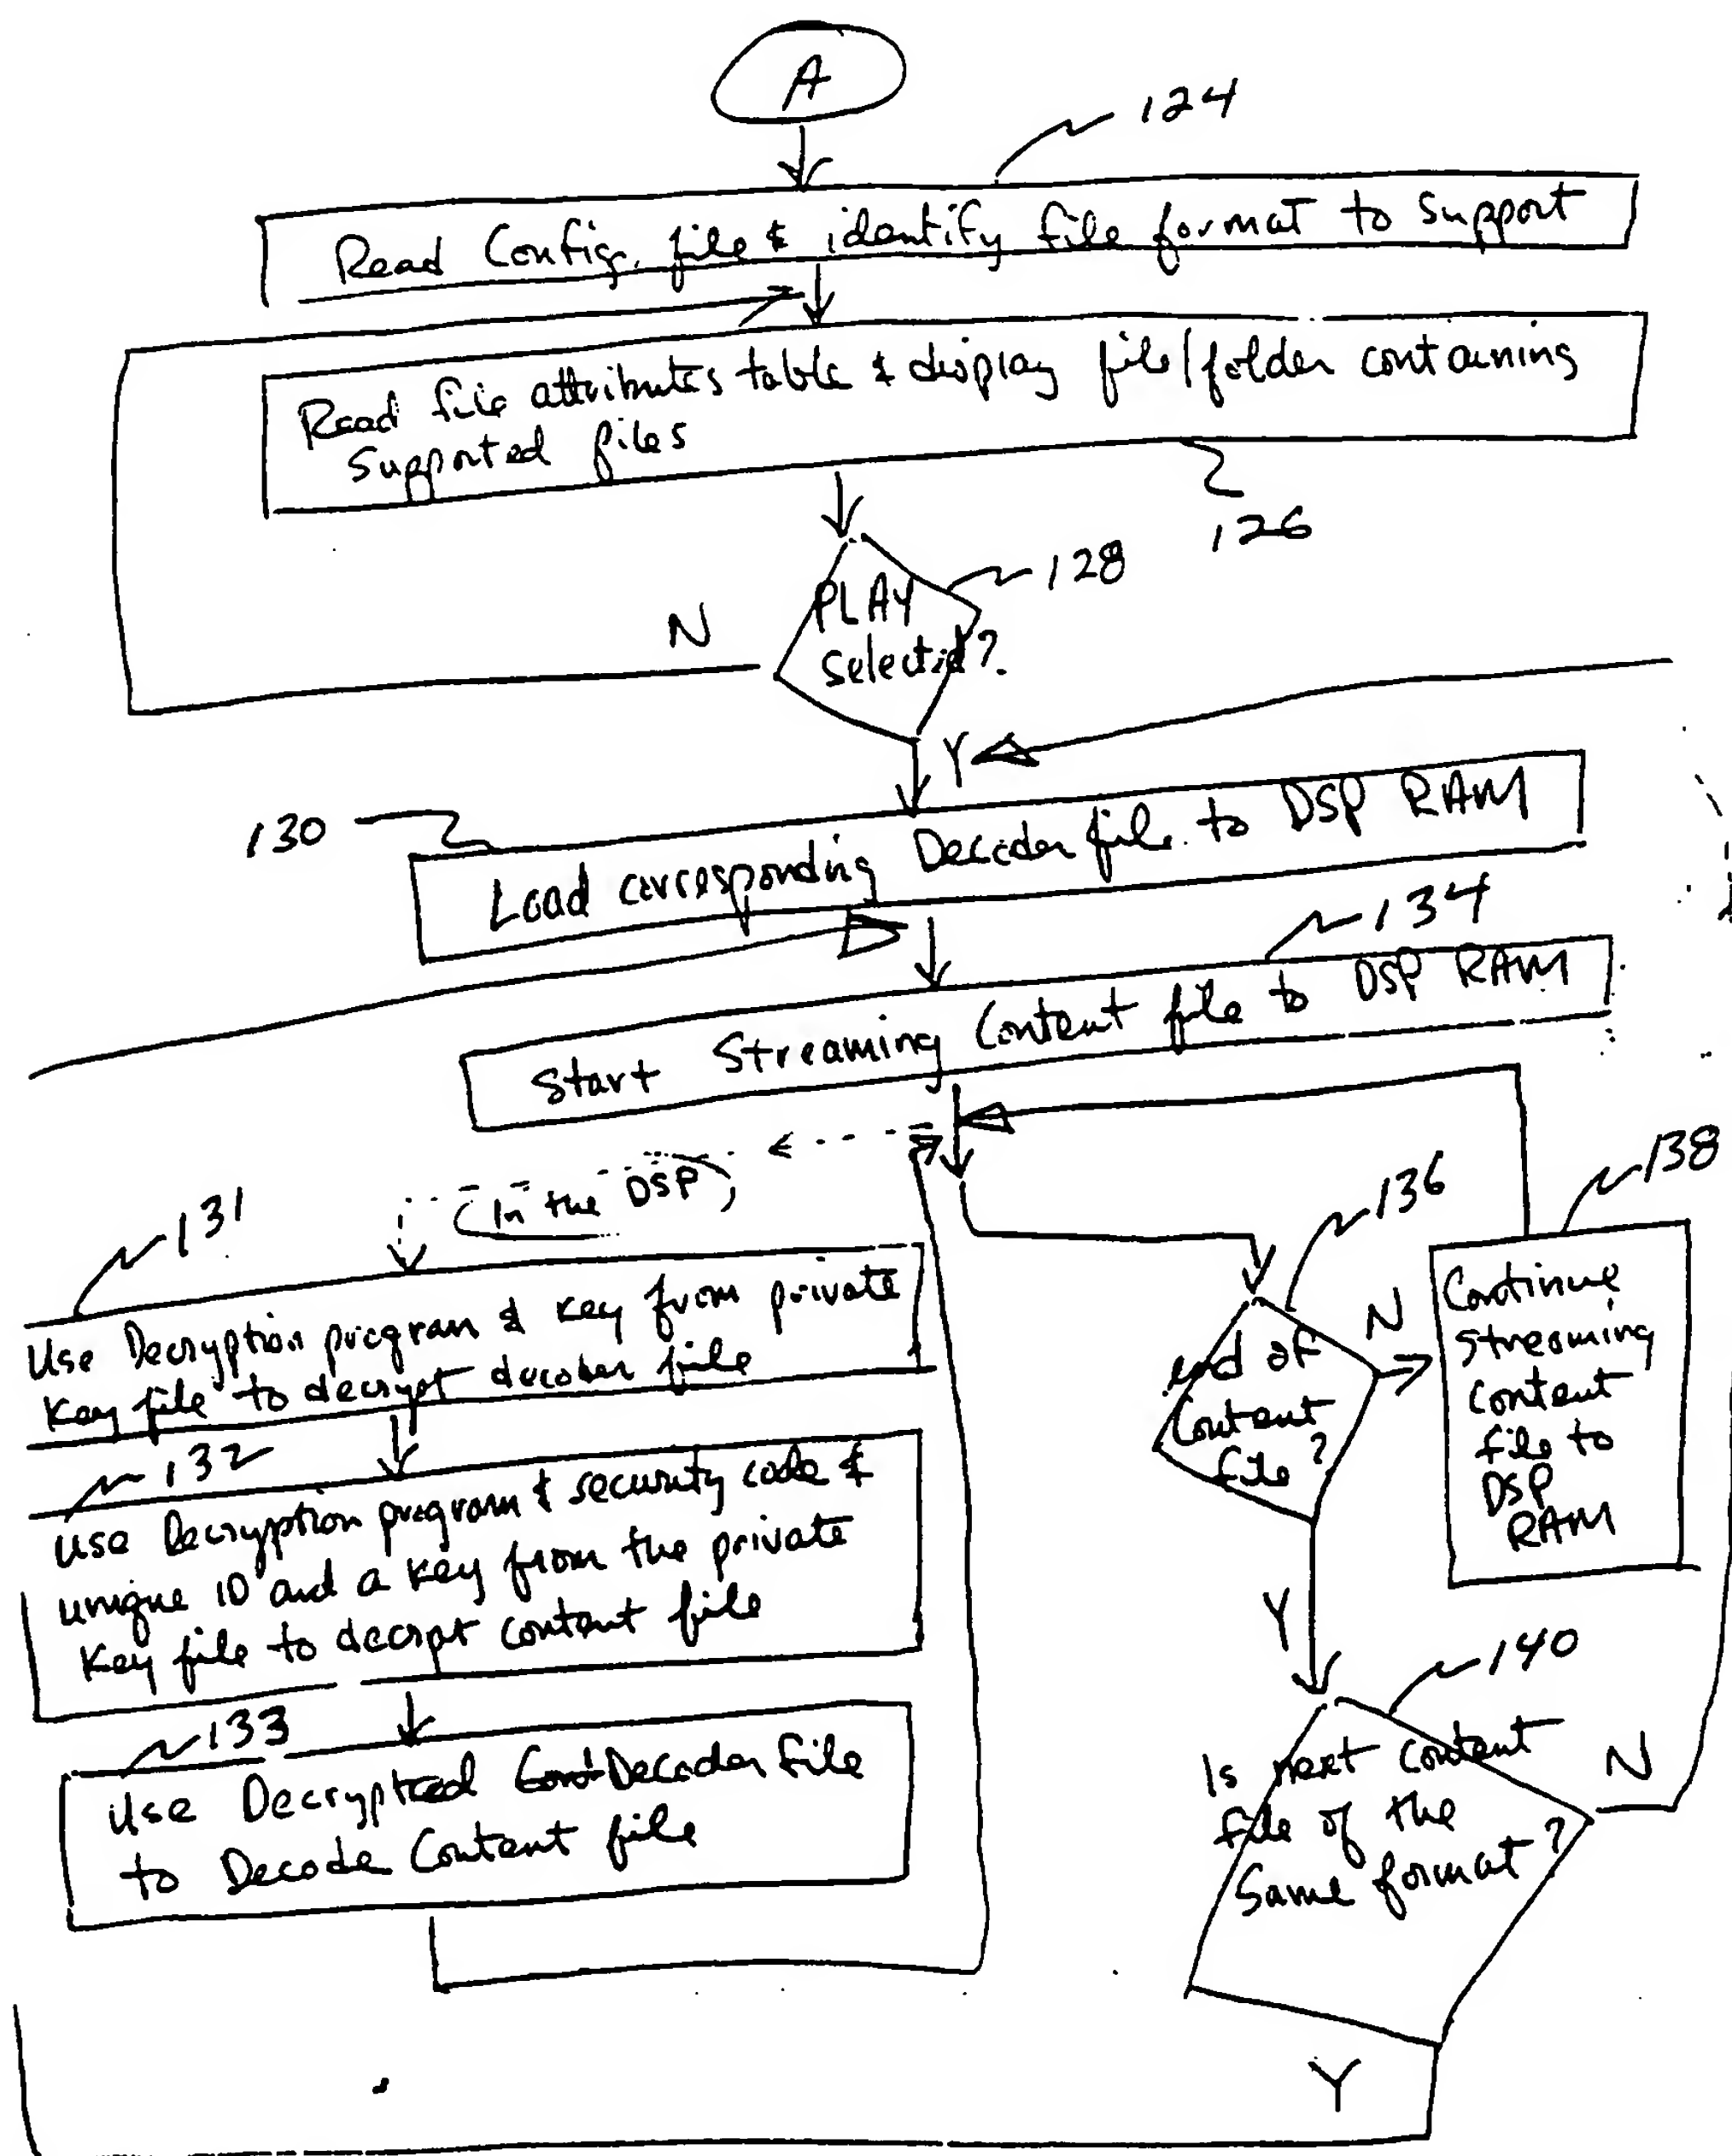 A
124
Read Config. file & identify file format to support
Read file attributes table & display file/folder containing
supported files
126
128
PLAY
selected?
N
Y
130
Load corresponding Decoder file to DSP RAM
134
Start Streaming Content file to DSP RAM
(In the DSP)
131
Use Decryption program & key from private
Key file to decrypt decoder file
132
use Decryption program & security code &
unique ID and a key from the private
Key file to decrpt content file
133
Use Decrypted Decoder File
to Decode Content file
136
end of
Content
file?
N
Y
138
Continue
streaming
content
file to
DSP
RAM
140
Is next content
file of the
Same format?
N
Y